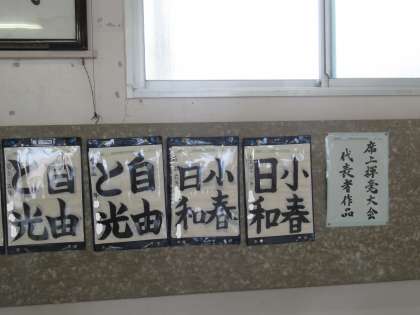 席上揮毫大会
代表者作品
小春
日和
小春
日和
自由
と光
自由
と光